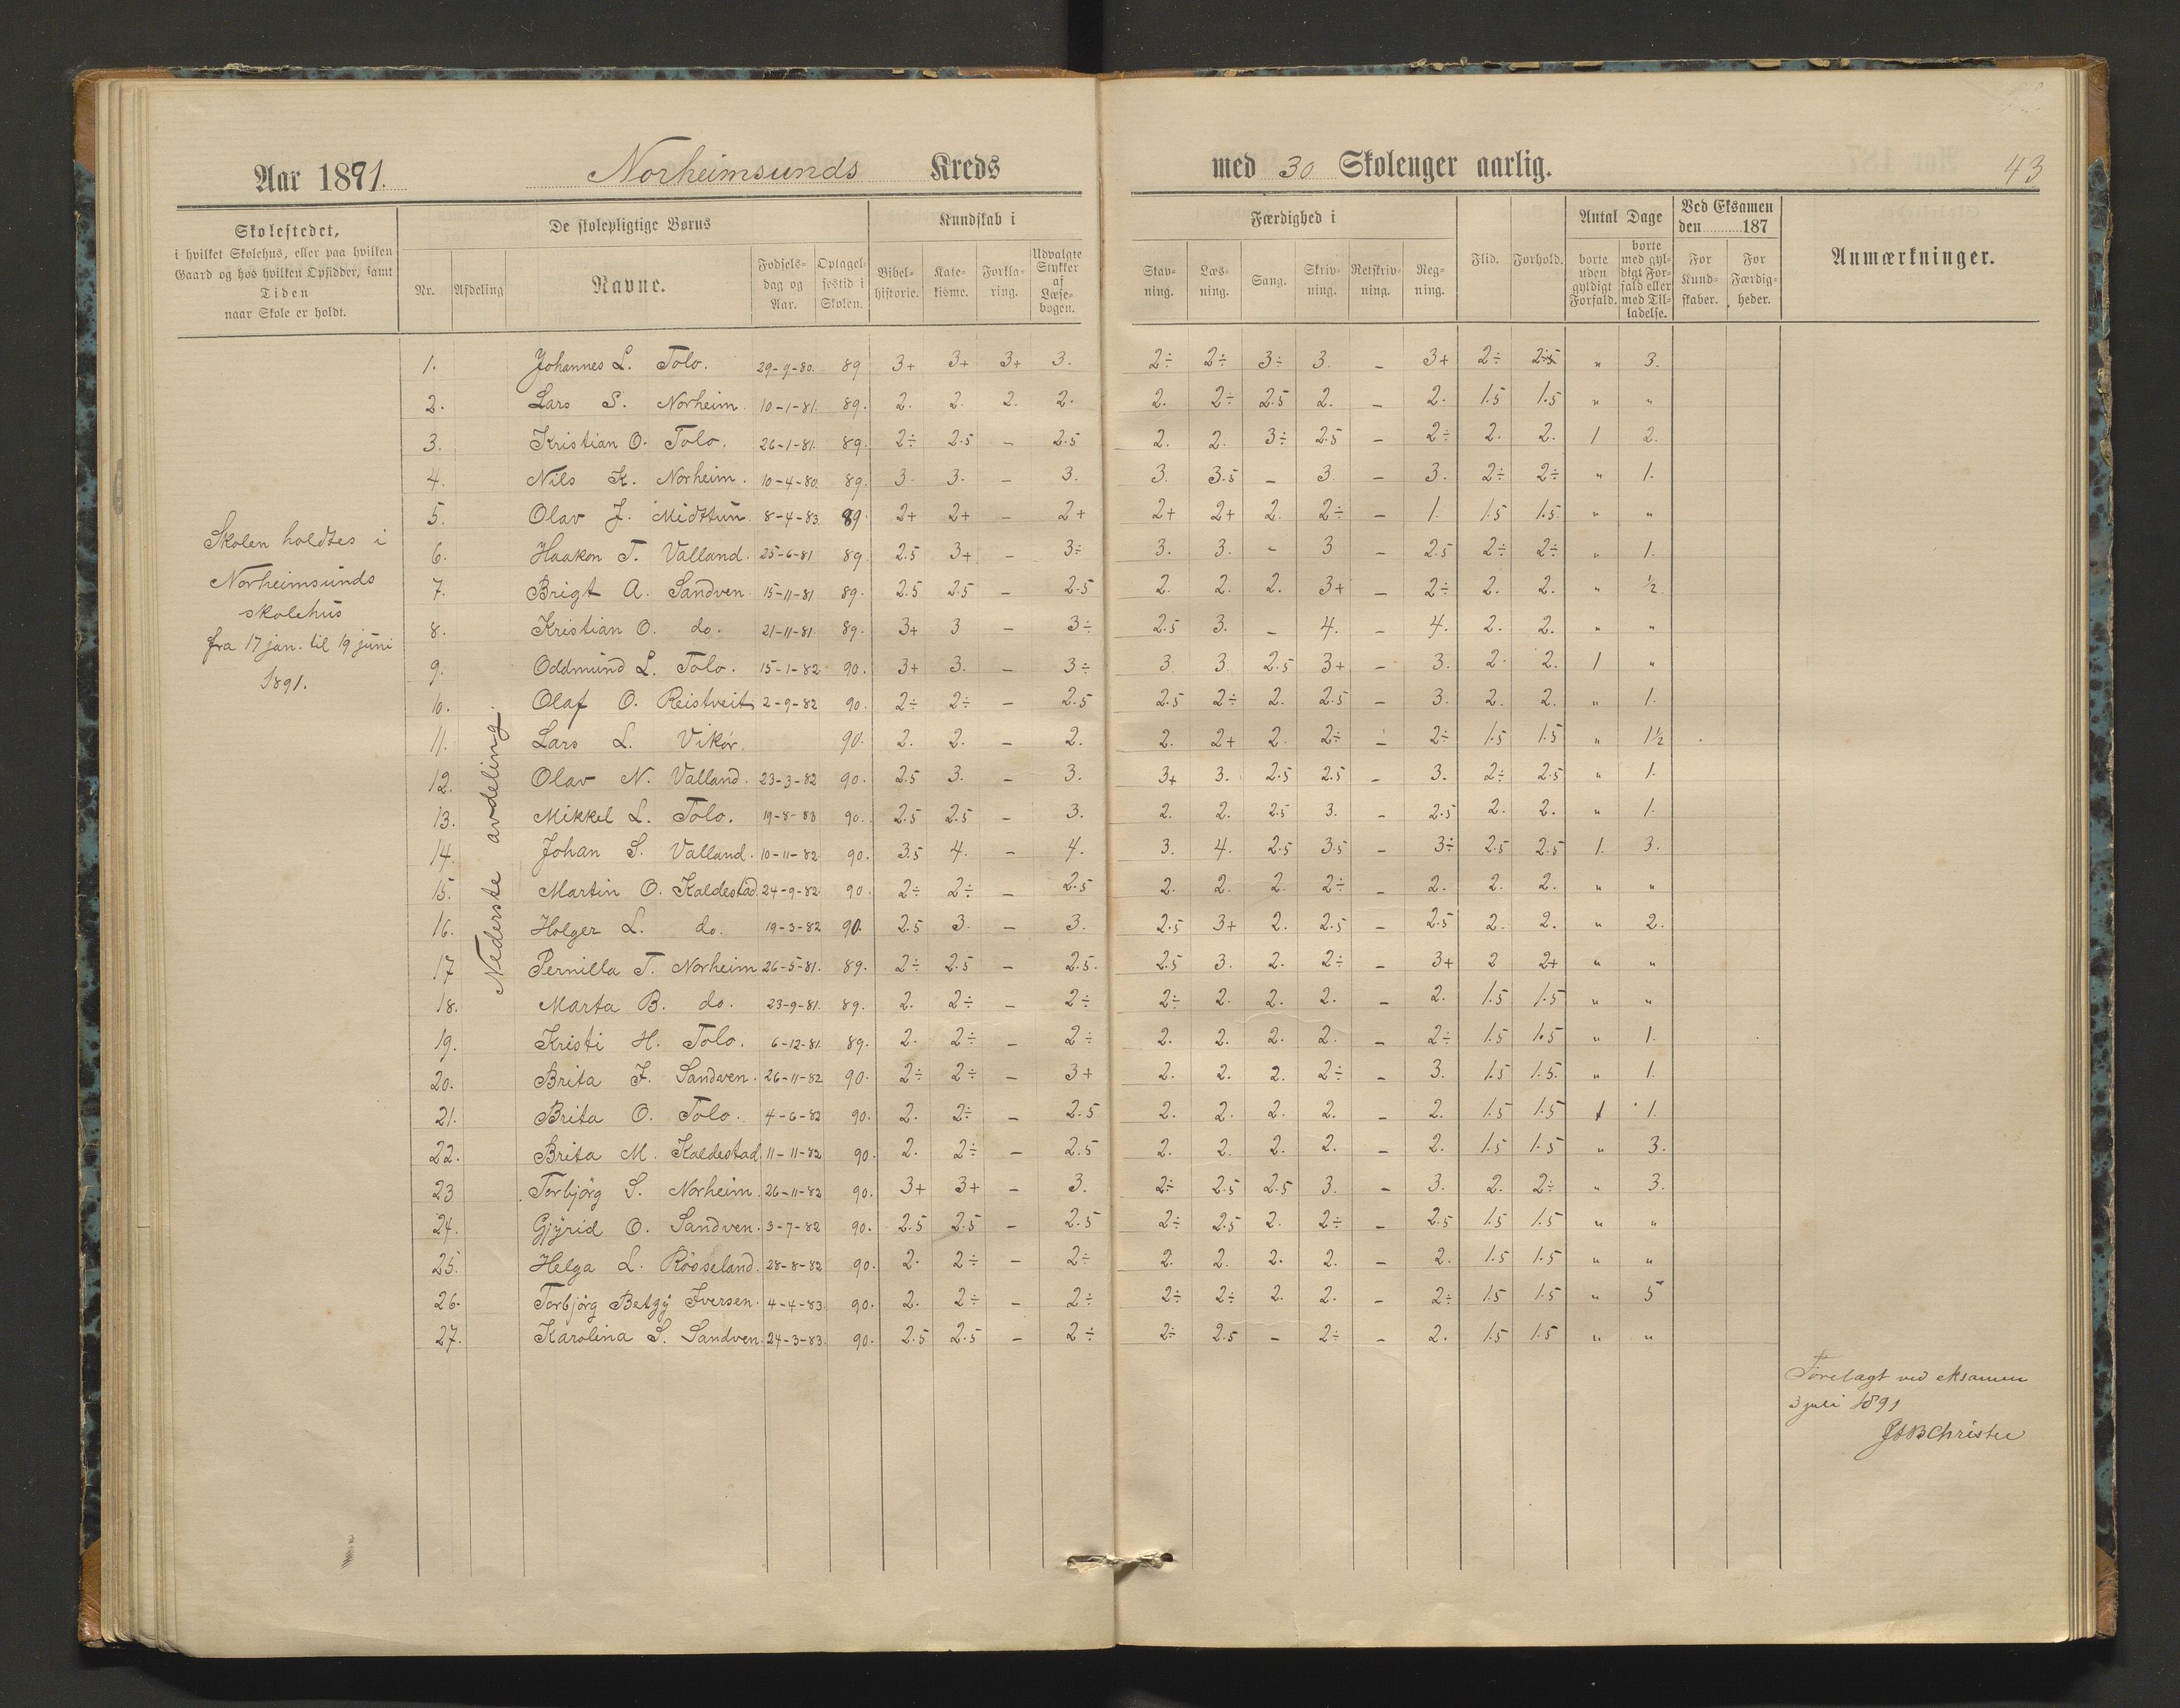 Aar 1891. Norheimsunds Kreds med 30 Skolenger aarlig. 43
Skolestedet,
i hvilket Skolehus, eller paa hvilken
Gaard og hos hvilken Opsidder, samt
Tiden
naar Skole er holdt.
De skolepligtige Børns
Nr. Afdeling Navne. Fødsels-dag og Aar. Optagel-sestid i Skolen.
Kundskab i
Bibel-historie. Kate-kisme. Forkla-ring. Udvalgte Stykker af Læse-bogen.
Færdighed i
Stav-ning. Læs-ning. Sang. Skriv-ning. Retskriv-ning. Reg-ning.
Flid. Forhold.
Antal Dage
borte uden gyldigt Forfald. borte med gyl-digt For-fald eller med Til-ladelse.
Ved Eksamen den 187
For Kund-skaber. For Færdig-heder.
Anmærkninger.
Skolen holdtes i
Norheimsunds
skolehus
fra 17 jan. til 19 juni
1891.
Nederste avdeling.
1. Johannes L. Tolo. 29-9-80. 89 3+ 3+ 3+ 3. 2÷ 2÷ 3÷ 3. - 3+ 2÷ 2÷ " 3.
2. Lars S. Norheim. 10-1-81. 89. 2. 2. 2. 2. 2. 2÷ 2.5 2. - 2. 1.5 1.5 " "
3. Kristian O. Tolo. 26-1-81. 89. 2÷ 2.5 - 2.5 2. 2. 3÷ 2.5 - 2÷ 2. 2. 1 2.
4. Nils K. Norheim. 10-4-80. 89. 3. 3. - 3. 3. 3.5 - 3. - 3. 2÷ 2÷ " 1.
5. Olav J. Midttun. 8-4-83. 89. 2+ 2+ - 2+ 2+ 2+ 2. 2÷ - 1. 1.5 1.5. " "
6. Haakon T. Valland. 25-6-81 89. 2.5 3+ - 3÷ 3. 3. - 3 - 2.5 2÷ 2÷ " 1.
7. Brigt A. Sandven. 15-11-81 89. 2.5 2.5 - 2.5 2. 2. 2. 3+ - 2÷ 2. 2. " ½
8. Kristian O. do. 21-11-81. 89. 3+ 3 - 3÷ 2.5 3. - 4. - 4. 2. 2. " "
9. Oddmund L. Tolo. 15-1-82. 90. 3+ 3. - 3÷ 3 3. 2.5 3+ - 3. 2. 2. 1 "
10. Olaf O. Reistveit 2-9-82 90. 2÷ 2÷ - 2.5 2.5 2÷ 2. 2.5 - 3. 2. 2. " 1.
11. Lars L. Vikör. 90. 2. 2. - 2. 2. 2+ 2. 2÷ - 2÷ 1.5 1.5 " 1½
12. Olav N. Valland. 23-3-82 90. 2.5 3. - 3. 3+ 3. 2.5 2.5 - 3. 2÷ 2.5 " 1.
13. Mikkel L. Tolo. 19-8-83 90. 2.5 2.5 - 3. 2. 2. 2.5 3. - 2.5 2. 2. " 1.
14. Johan S. Valland. 10-11-82 90. 3.5 4. - 4. 3. 4. 2.5 3.5 - 3÷ 2.5 2.5 1. 3.
15. Martin O. Kaldestad. 24-9-82. 90. 2÷ 2÷ - 2.5 2. 2. 2. 2÷ - 2. 2. 2. " "
16. Holger L. do. 19-3-82 90. 2.5 3. - 3. 2.5 3+ 2. 2.5 - 2.5 2. 2. " 2.
17 Pernilla T. Norheim 26-5-81. 89. 2÷ 2.5 - 2.5. 2.5 3. 2. 2÷ - 3+ 2 2+ " "
18. Marta B. do. 23-9-81. 89. 2. 2÷ - 2÷ 2÷ 2. 2. 2. - 2. 1.5 1.5 " "
19. Kristi H. Tolo. 6-12-81. 89. 2. 2÷ - 2÷ 2. 2. 2. 2. - 2÷ 1.5 1.5 " 1.
20. Brita J. Sandven. 26-11-82 90. 2÷ 2÷ - 3+ 2. 2. 2. 2÷ - 3. 1.5 1.5. " 1.
21. Brita O. Tolo. 4-6-82 90. 2. 2÷ - 2.5 2. 2. 2. 2. - 2. 1.5 1.5 1 1.
22. Brita M. Kaldestad. 11-11-82 90. 2. 2÷ - 2.5 2. 2. 2. 2. - 2. 1.5 1.5 " 3.
23 Torbjörg S. Norheim. 26-11-82 90. 3+ 3+ - 3. 2÷ 2.5 2.5 3. - 3. 2. 2÷ " 3.
24. Gjyrid O. Sandven. 3-7-82 90. 2.5 2.5 - 2.5 2÷ 2.5 2. 2÷ - 2.5 1.5 1.5 " "
25. Helga L. Rösseland. 28-8-82 90. 2. 2÷ - 2÷ 2. 2. 2. 2. - 2. 1.5 1.5 " "
26. Torbjörg Betzy Iversen. 4-4-83. 90. 2. 2÷ - 2÷ 2÷ 2÷ 2. 2. - 2÷ 1.5 1.5 " 5
27. Karolina S. Sandven. 24-3-83. 90. 2.5 2.5 - 2÷ 2÷ 2.5 - 2÷ - 2. 1.5 1.5 " "
Forelagt ved eksamen
3 juli 1891
Christie